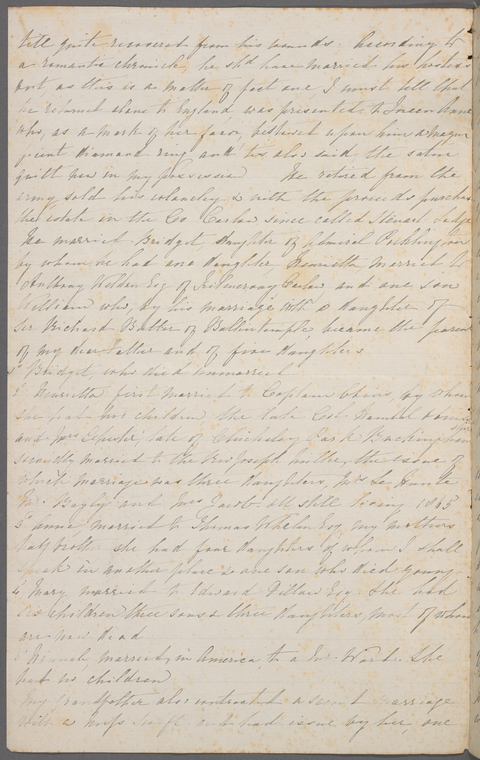 till quite recovered from his wounds. According to
a romantic chronicle, he shd have married his
but, as this is a matter of fact one I must tell that
he returned alone to England was presented to Queen Anne
who, as a mark of her favor, bestowed upon him a magni
ficent diamond ring and tis also said the satin
quilt now in my possession He retired from the
army sold his & with the proceeds purchased
the estate in the Co. Carlow since called Steuart Lodge
He married Bridget daughter of Admiral
by whom he had one daughter, Henrietta married to
Anthony Esq of Carlow and one son
William who, by his marriage with a daughter of
Sir Richard Butler of Ballintemple, became the parent
of my dear Father and of five daughters
1st Bridget who died unmarried
2 Henrietta first married to Captain by whom
she had two children the late Col.
and Mrs late of Chicheley Park Buckingham
secondly married to the Revd Joseph the issue of
which marriage was three daughters, Mrs Le Hunte
Mrs and Mrs Jacob all still living 1865
3d Anne, married to Thomas Whelan Esq my mothers
half brother she had four daughters of whom I shall
speak in another place & one son who died young
4 Mary married to Edward Esq. She had
six children three sons & three daughters, most of whom
are now dead
5 Hannah married, in America to a Mr. Ward. She
had no children
My Grandfather also contracted a second marriage
with a Miss and had issue by her, one